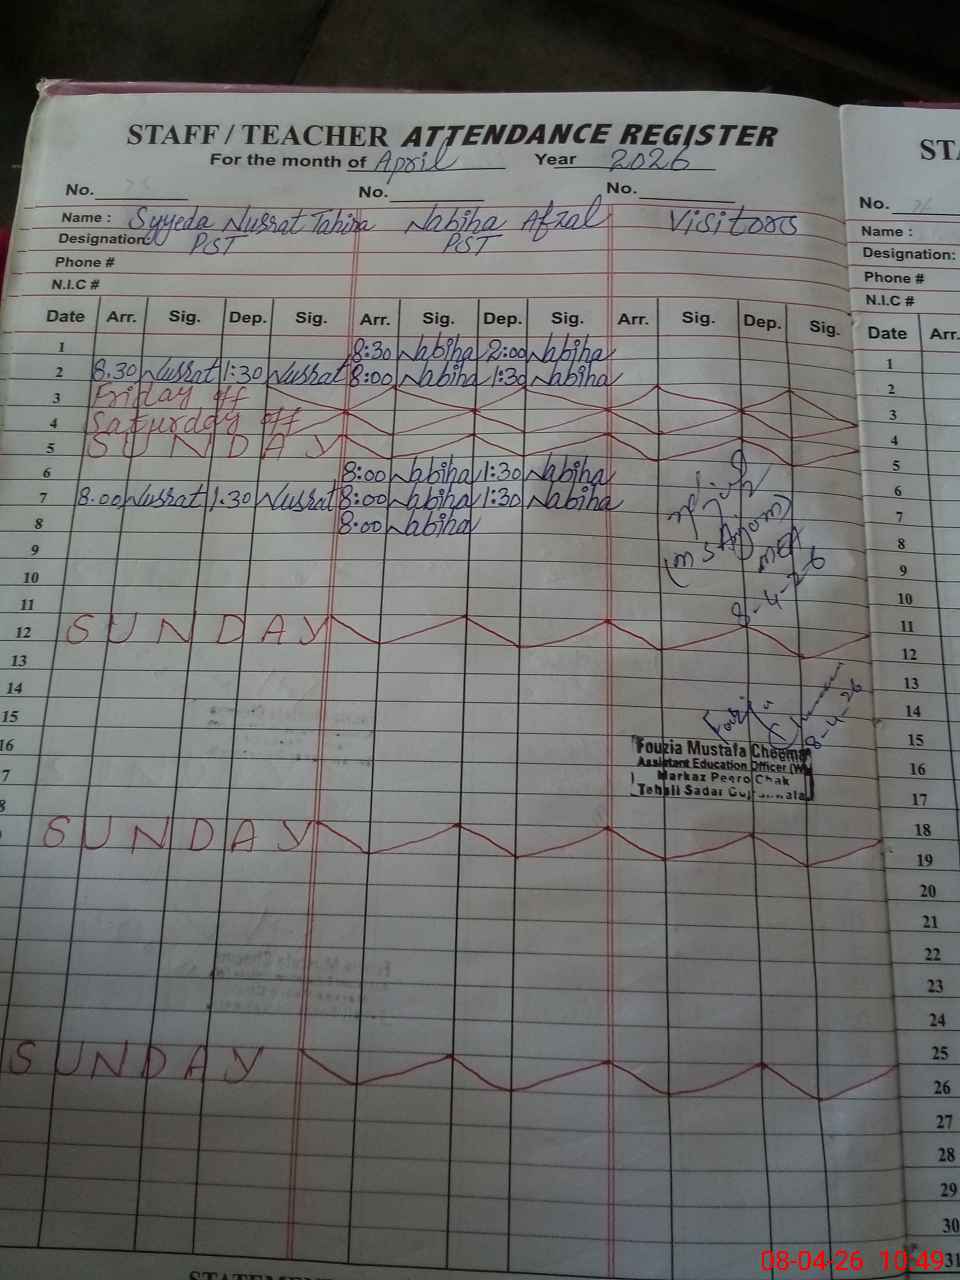 STAFF / TEACHER ATTENDANCE REGISTER
For the month of April Year 2026
No. No. No.
Name : Syyeda Nussrat Tahira Nabiha Afzal Visitors
Designation: PST PST
Phone #
N.I.C #
Date Arr. Sig. Dep. Sig. Arr. Sig. Dep. Sig. Arr. Sig. Dep. Sig.
1 8:30 Nabiha 2:00 Nabiha
2 8.30 Nussrat 1:30 Nussrat 8:00 Nabiha 1:30 Nabiha
3 Friday off
4 Saturday off
5 SUNDAY
6 8:00 Nabiha 1:30 Nabiha
7 8.00 Nussrat 1.30 Nussrat 8:00 Nabiha 1:30 Nabiha
8 8:00 Nabiha
9
10
11
12 SUNDAY
13
14
15
16
7
8
SUNDAY
SUNDAY
MEA
8-4-26
8-4-26
Fouzia Mustafa Cheema
Assistant Education Officer (W)
Markaz Peero Chak
Tehsil Sadar
No.
Name :
Designation:
Phone #
N.I.C #
Date Arr.
1
2
3
4
5
6
7
8
9
10
11
12
13
14
15
16
17
18
19
20
21
22
23
24
25
26
27
28
29
30
31
08-04-26 10:49